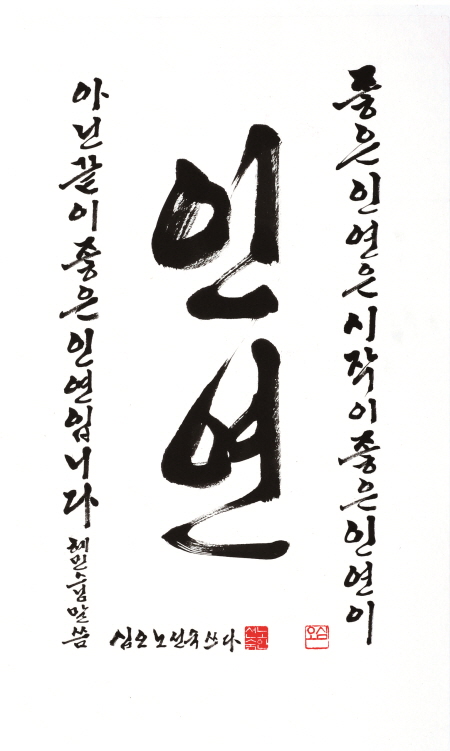 좋은인연은시작이좋은인연이
인연
아닌끝이좋은인연입니다
혜민스님말씀
심오노선숙쓰다
심오